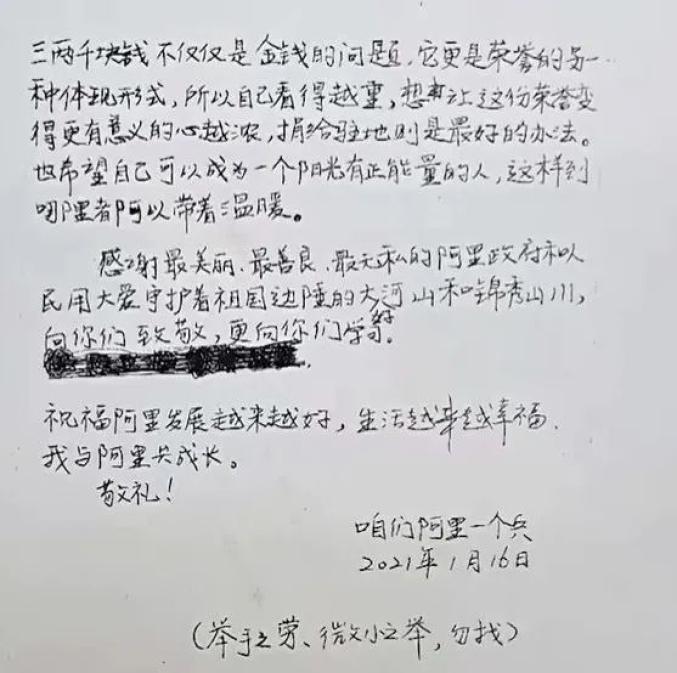 三两千块钱不仅仅是金钱的问题，它更是荣誉的另一
种体现形式，所以自己看得越重，想让这份荣誉变
得更有意义的心越浓，捐给驻地则是最好的办法。
也希望自己可以成为一个阳光有正能量的人，这样到
哪里都可以带着温暖。
感谢最美丽、最善良、最无私的阿里政府和人
民用大爱守护着祖国边陲的大河山和锦秀山川，
向你们致敬，更向你们学习好。
祝福阿里发展越来越好，生活越来越幸福.
我与阿里共成长。
敬礼！
咱们阿里一个兵
2021年1月16日
（举手之劳、微小之举，勿找）